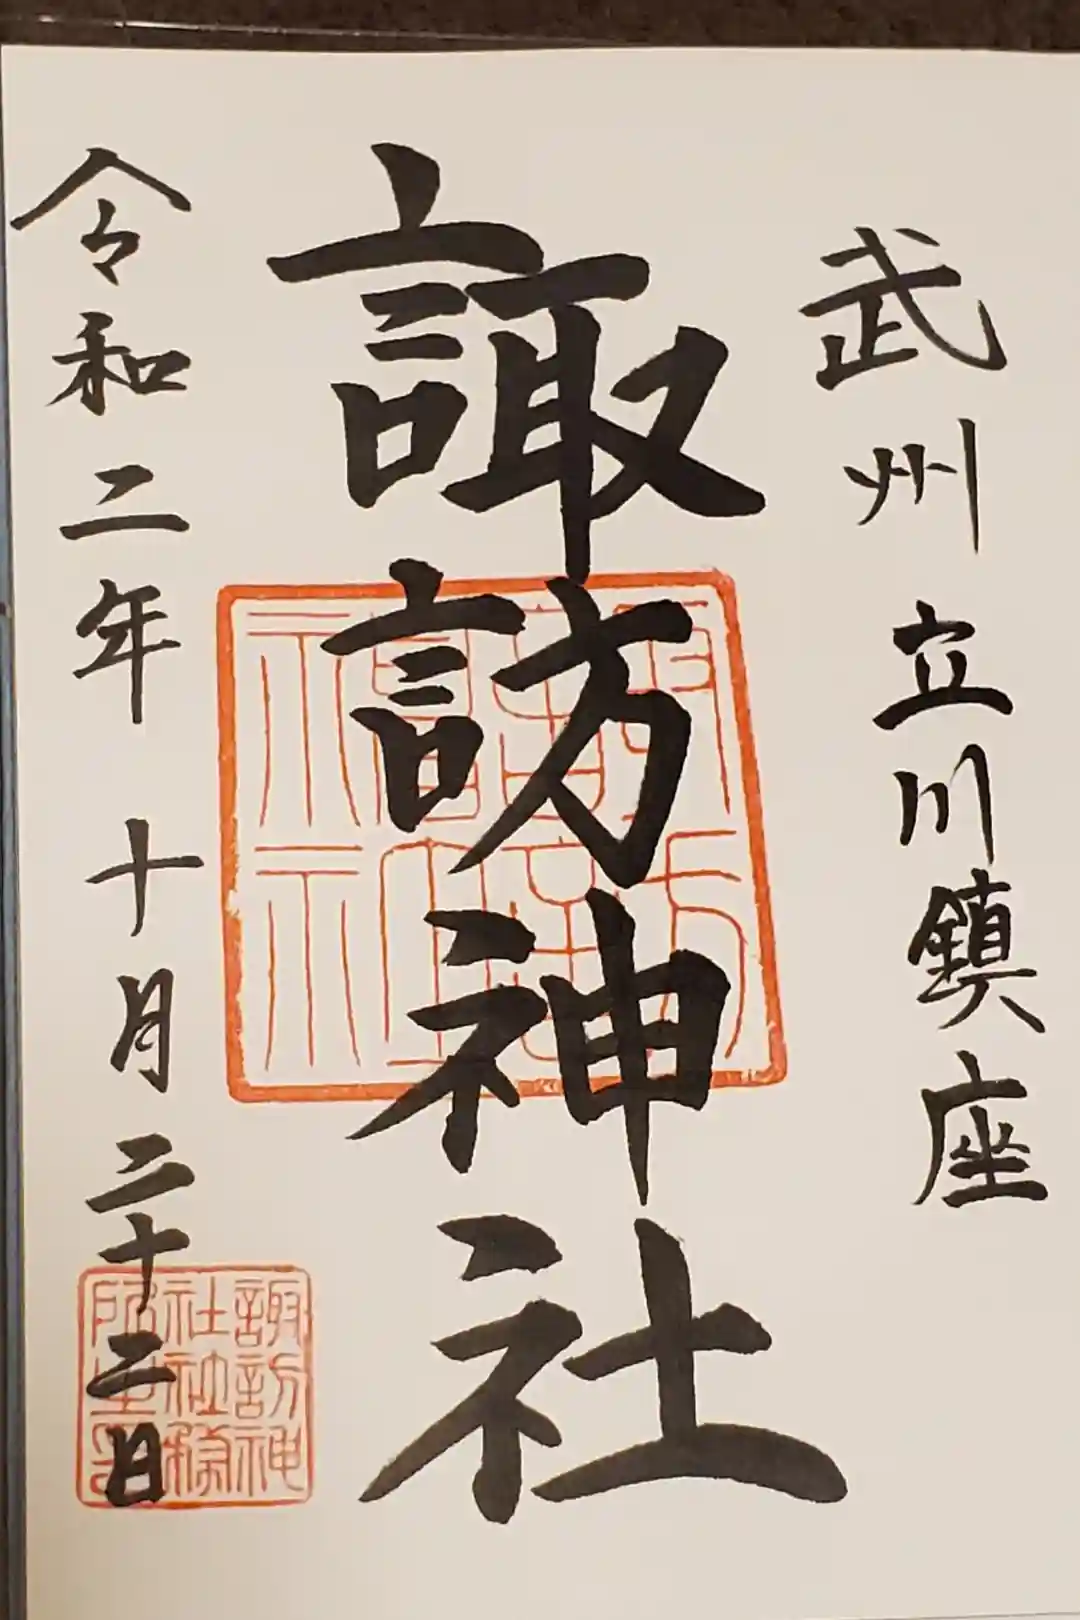 武州 立川鎮座
諏訪神社
令和二年 十月二十二日
諏訪神
社社務